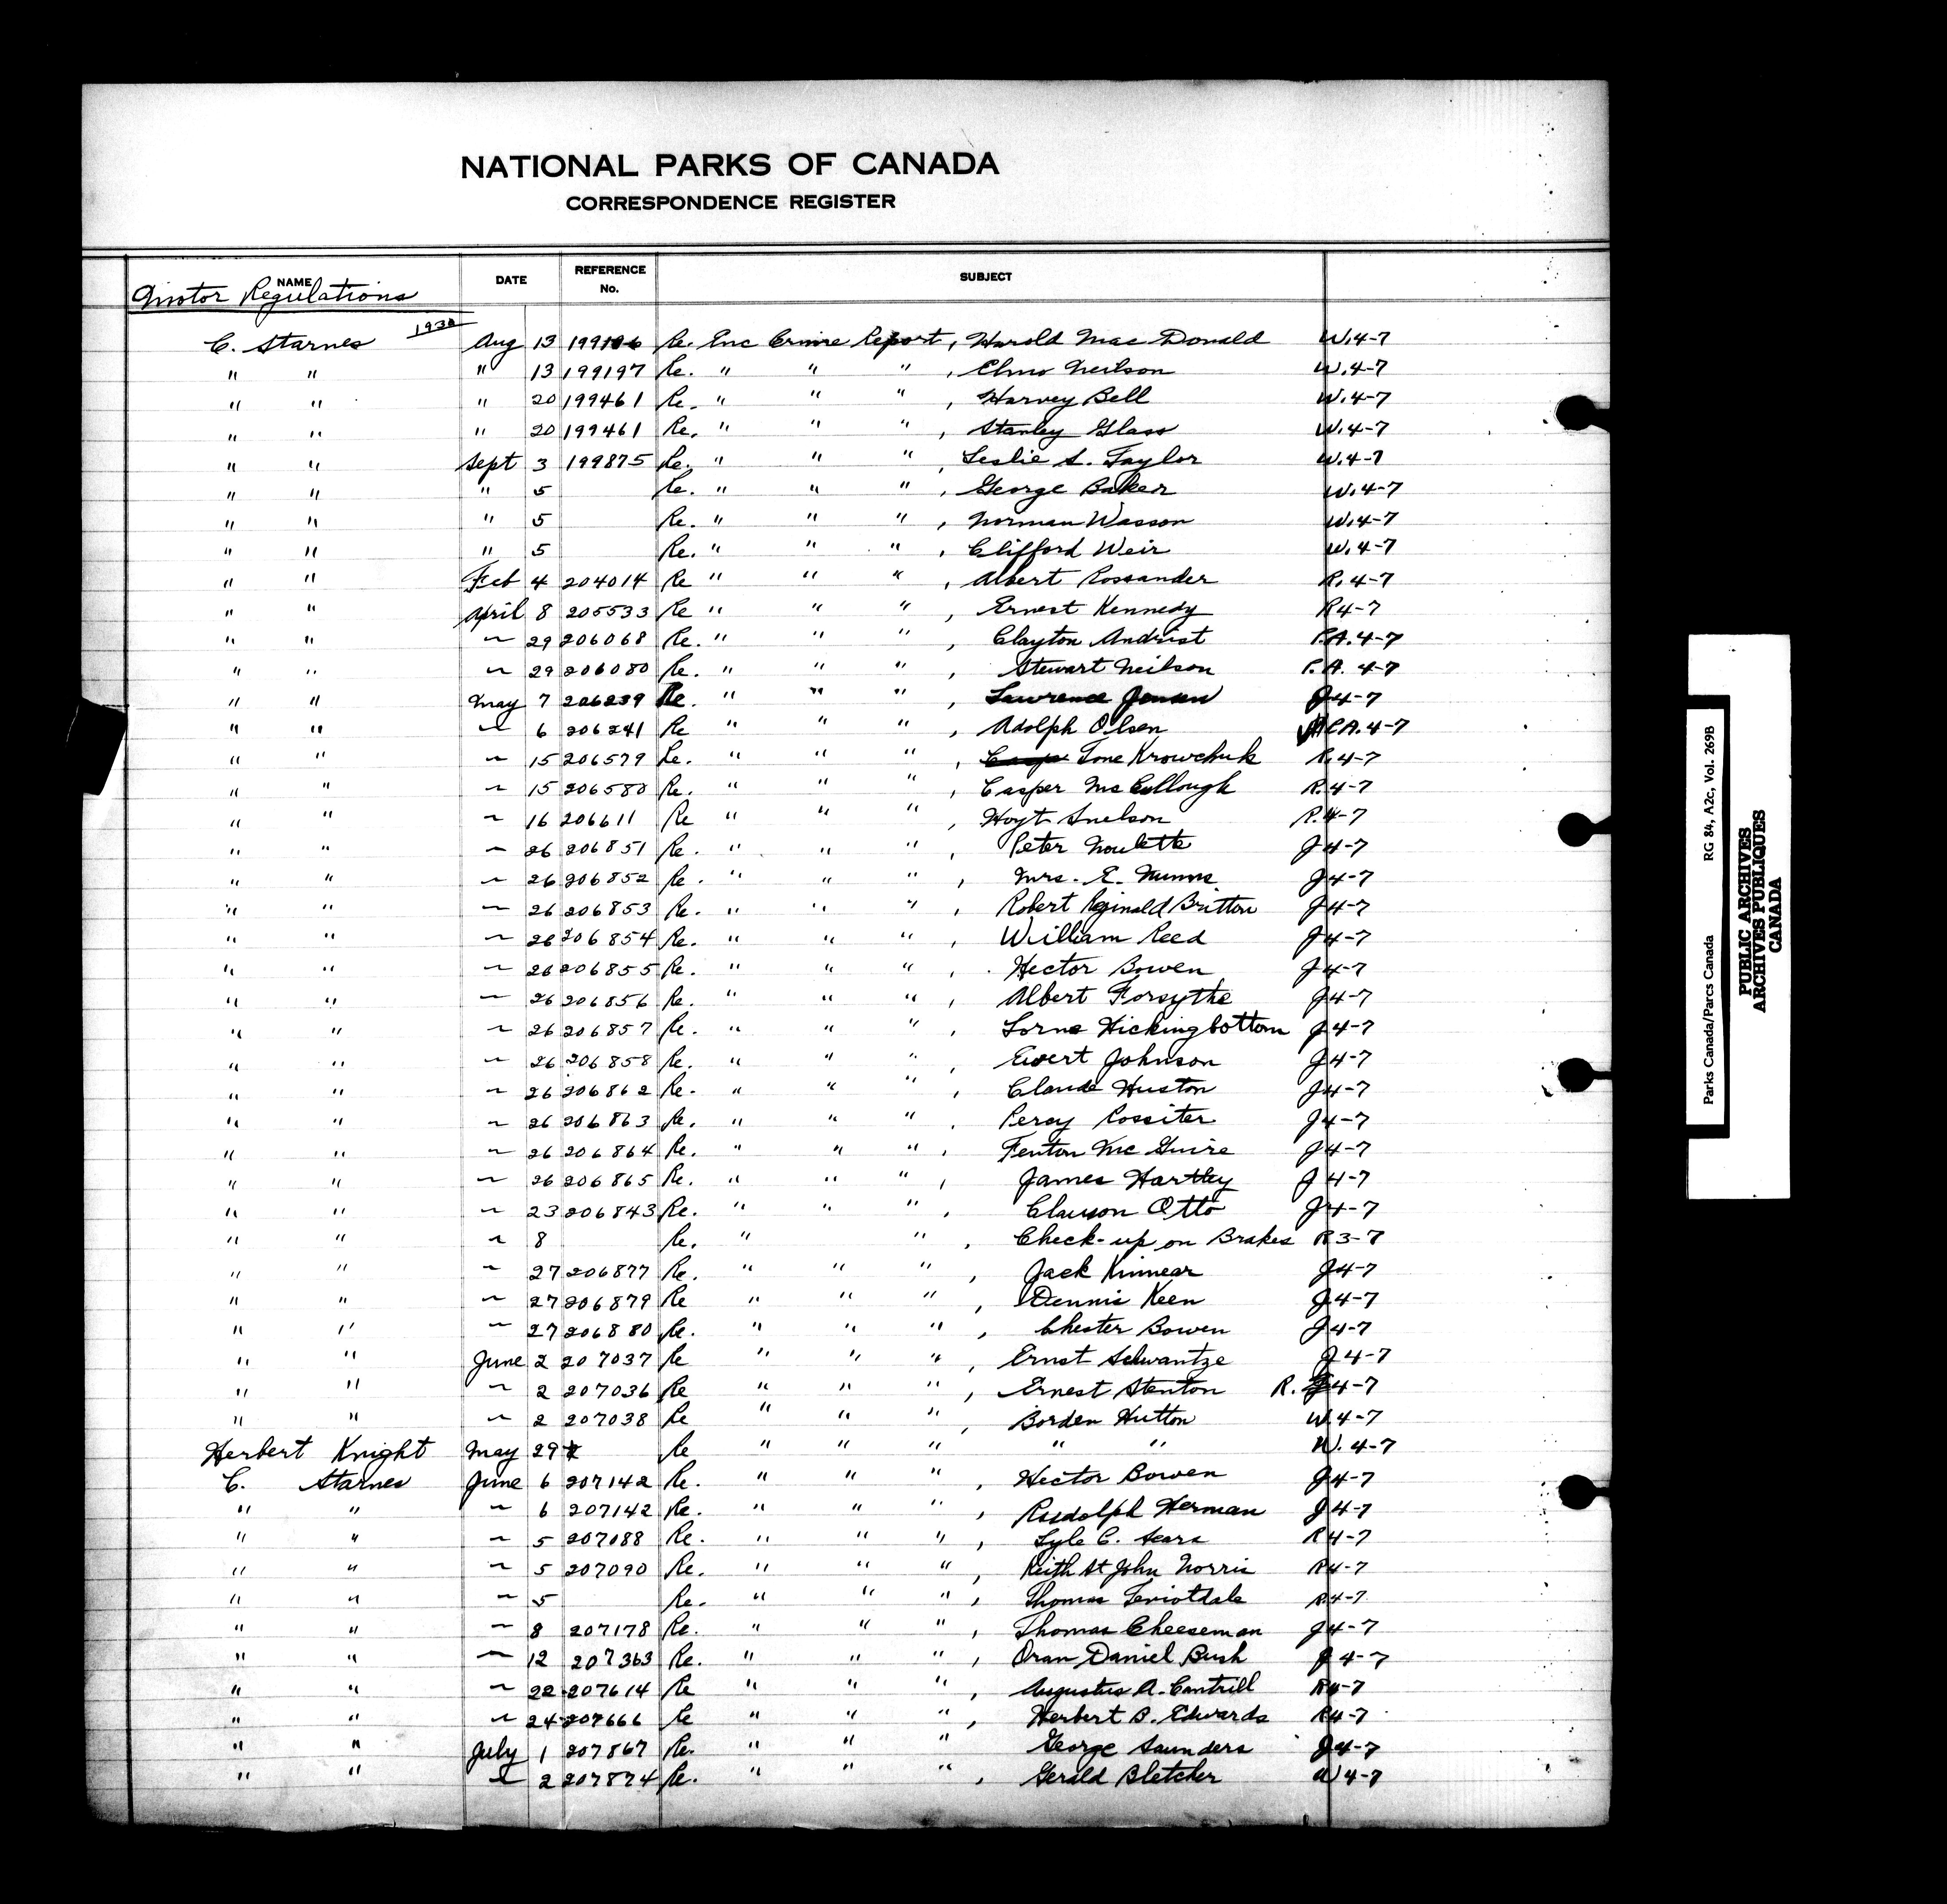 NATIONAL PARKS OF CANADA
CORRESPONDENCE REGISTER
NAME DATE REFERENCE No. SUBJECT
Motor Regulations
1930
C. Starnes Aug 13 199196 Re. Enc Crime Report, Harold Mac Donald W.4-7
" " " 13 199197 Re. " " ", Elmo Neilson W.4-7
" " " 20 199461 Re. " " ", Harvey Bell W.4-7
" " " 20 199461 Re. " " ", Stanley Glass W.4-7
" " Sept 3 199875 Re. " " ", Leslie S. Taylor W.4-7
" " " 5 Re. " " ", George Baker W.4-7
" " " 5 Re. " " ", Norman Wasson W.4-7
" " " 5 Re. " " ", Clifford Weir W.4-7
" " Feb 4 204014 Re " " ", Albert Rossander R.4-7
" " April 8 205533 Re " " ", Ernest Kennedy R4-7
" " ~ 29 206068 Re. " " ", Clayton Andrist P.A.4-7
" " ~ 29 206080 Re. " " ", Stewart Neilson P.A. 4-7
" " May 7 206239 Re. " " ", Lawrence Jensen J4-7
" " ~ 6 206241 Re " " ", Adolph Olsen P.A.4-7
" " ~ 15 206579 Re. " " ", Tone Krowchuk R.4-7
" " ~ 15 206580 Re. " " ", Casper McCullough R.4-7
" " ~ 16 206611 Re " " ", Hoyt Snelson R.4-7
" " ~ 26 206851 Re. " " ", Peter Noulette J4-7
" " ~ 26 206852 Re. " " ", Mrs. E. Nunns J4-7
" " ~ 26 206853 Re. " " ", Robert Reginald Britton J4-7
" " ~ 26 206854 Re. " " ", William Reed J4-7
" " ~ 26 206855 Re. " " ", Hector Bowen J4-7
" " ~ 26 206856 Re. " " ", Albert Forsythe J4-7
" " ~ 26 206857 Re. " " ", Lorne Hickingbottom J4-7
" " ~ 26 206858 Re. " " ", Evert Johnson J4-7
" " ~ 26 206862 Re. " " ", Claude Huston J4-7
" " ~ 26 206863 Re. " " ", Percy Rossiter J4-7
" " ~ 26 206864 Re. " " ", Fenton McGuire J4-7
" " ~ 26 206865 Re. " " ", James Hartley J4-7
" " ~ 23 206843 Re. " " ", Clauson Otto J4-7
" " ~ 8 Re. " ", Check-up on Brakes R3-7
" " ~ 27 206877 Re. " " ", Jack Kinnear J4-7
" " ~ 27 206879 Re " " ", Dennis Keen J4-7
" " ~ 27 206880 Re. " " ", Chester Bowen J4-7
" " June 2 207037 Re " " ", Ernst Schwantze J4-7
" " ~ 2 207036 Re " " ", Ernest Stenton R. 4-7
" " ~ 2 207038 Re " " ", Borden Hutton W.4-7
Herbert Knight May 29 Re " " " " " W.4-7
C. Starnes June 6 207142 Re. " " ", Hector Bowen J4-7
" " ~ 6 207142 Re. " " ", Rudolph Herman J4-7
" " ~ 5 207088 Re. " " ", Lyle C. Sears R4-7
" " ~ 5 207090 Re. " " ", Keith St John Norris R4-7
" " ~ 5 Re. " " ", Thomas Teviotdale R.4-7
" " ~ 8 207178 Re. " " ", Thomas Cheeseman J4-7
" " ~ 12 207363 Re. " " ", Oran Daniel Bush J4-7
" " ~ 22 207614 Re " " ", Augustus A. Cantrill R4-7
" " ~ 24 207666 Re " " ", Herbert B. Edwards R4-7
" " July 1 207867 Re. " " " George Saunders J4-7
" " ~ 2 207874 Re. " " ", Gerald Bletcher W4-7
Parks Canada/Parcs Canada RG 84, A2c, Vol. 269B
PUBLIC ARCHIVES
ARCHIVES PUBLIQUES
CANADA